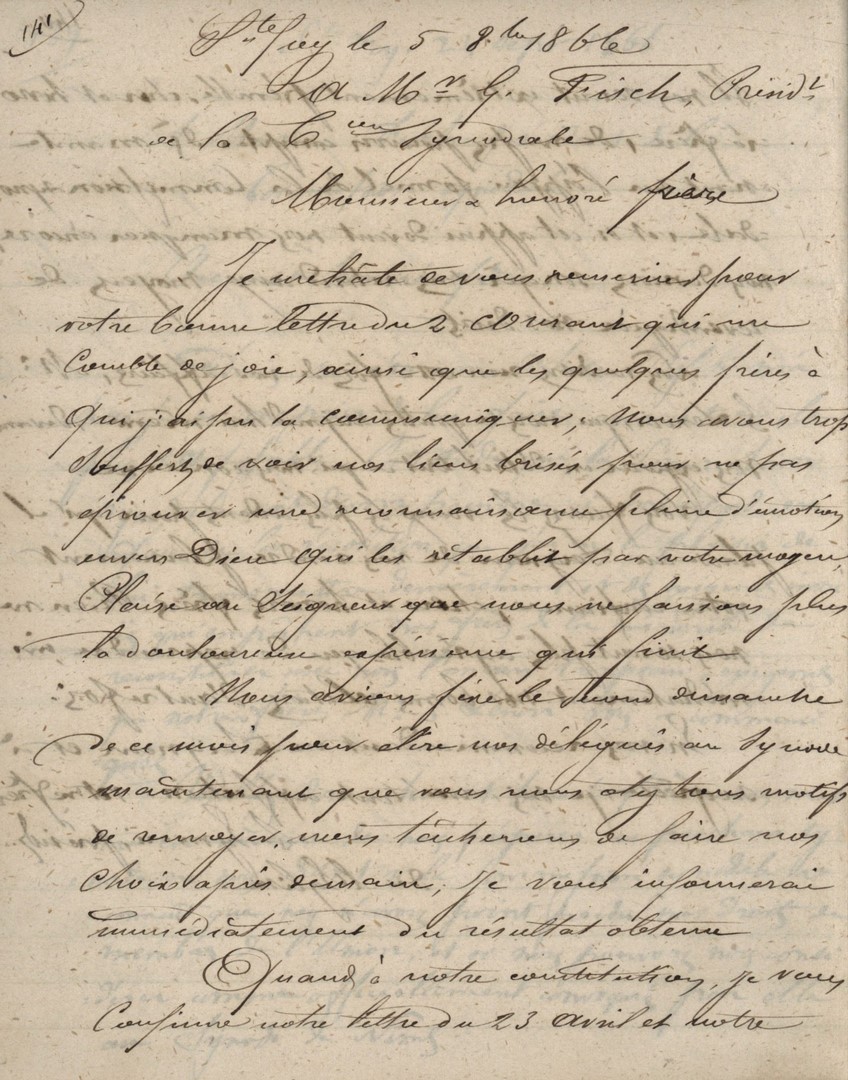 141
Ste foy le 5 8bre 1866
A Mr G. Fisch, Présidt
de la Cion Synodale
Monsieur & honoré frère
Je me hâte de vous remercier pour
votre bonne lettre du 2 courant qui me
comble de joie, ainsi que les quelques frères à
qui j'ai pu la communiquer, nous avons trop
souffert de voir nos liens brisés pour ne pas
éprouver une reconnaissance pleine d'émotion
envers Dieu qui les rétablit par votre moyen,
Plaise au Seigneur que nous ne fassions plus
la douloureuse expérience qui finit
Nous avions fixé le second dimanche
de ce mois pour élire nos délégués au Synode
maintenant que vous nous otez tous motifs
de renvoyer, nous tâcherons de faire nos
choix après demain, Je vous informerai
immédiatement du résultat obtenu
Quand à notre constitution, je vous
confirme notre lettre du 23 avril et notre